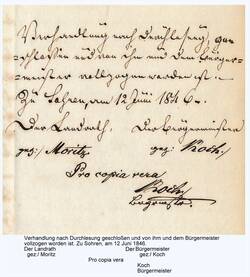 Verhandlung nach Durchlesung ge-
schlossen und von ihm und dem Bürger-
meister vollzogen worden ist.
Zu Sohren, am 12 Juni 1846.
Der Landrath. Der Bürgermeister
gez:/ Moritz gez:/ Koch.
Pro copia vera
Koch
Bürgermstr.
Verhandlung nach Durchlesung geschloßen und von ihm und dem Bürgermeister
vollzogen worden ist. Zu Sohren, am 12 Juni 1846.
Der Landrath Der Bürgermeister
gez:/ Moritz gez:/ Koch
Pro copia vera
Koch
Bürgermeister